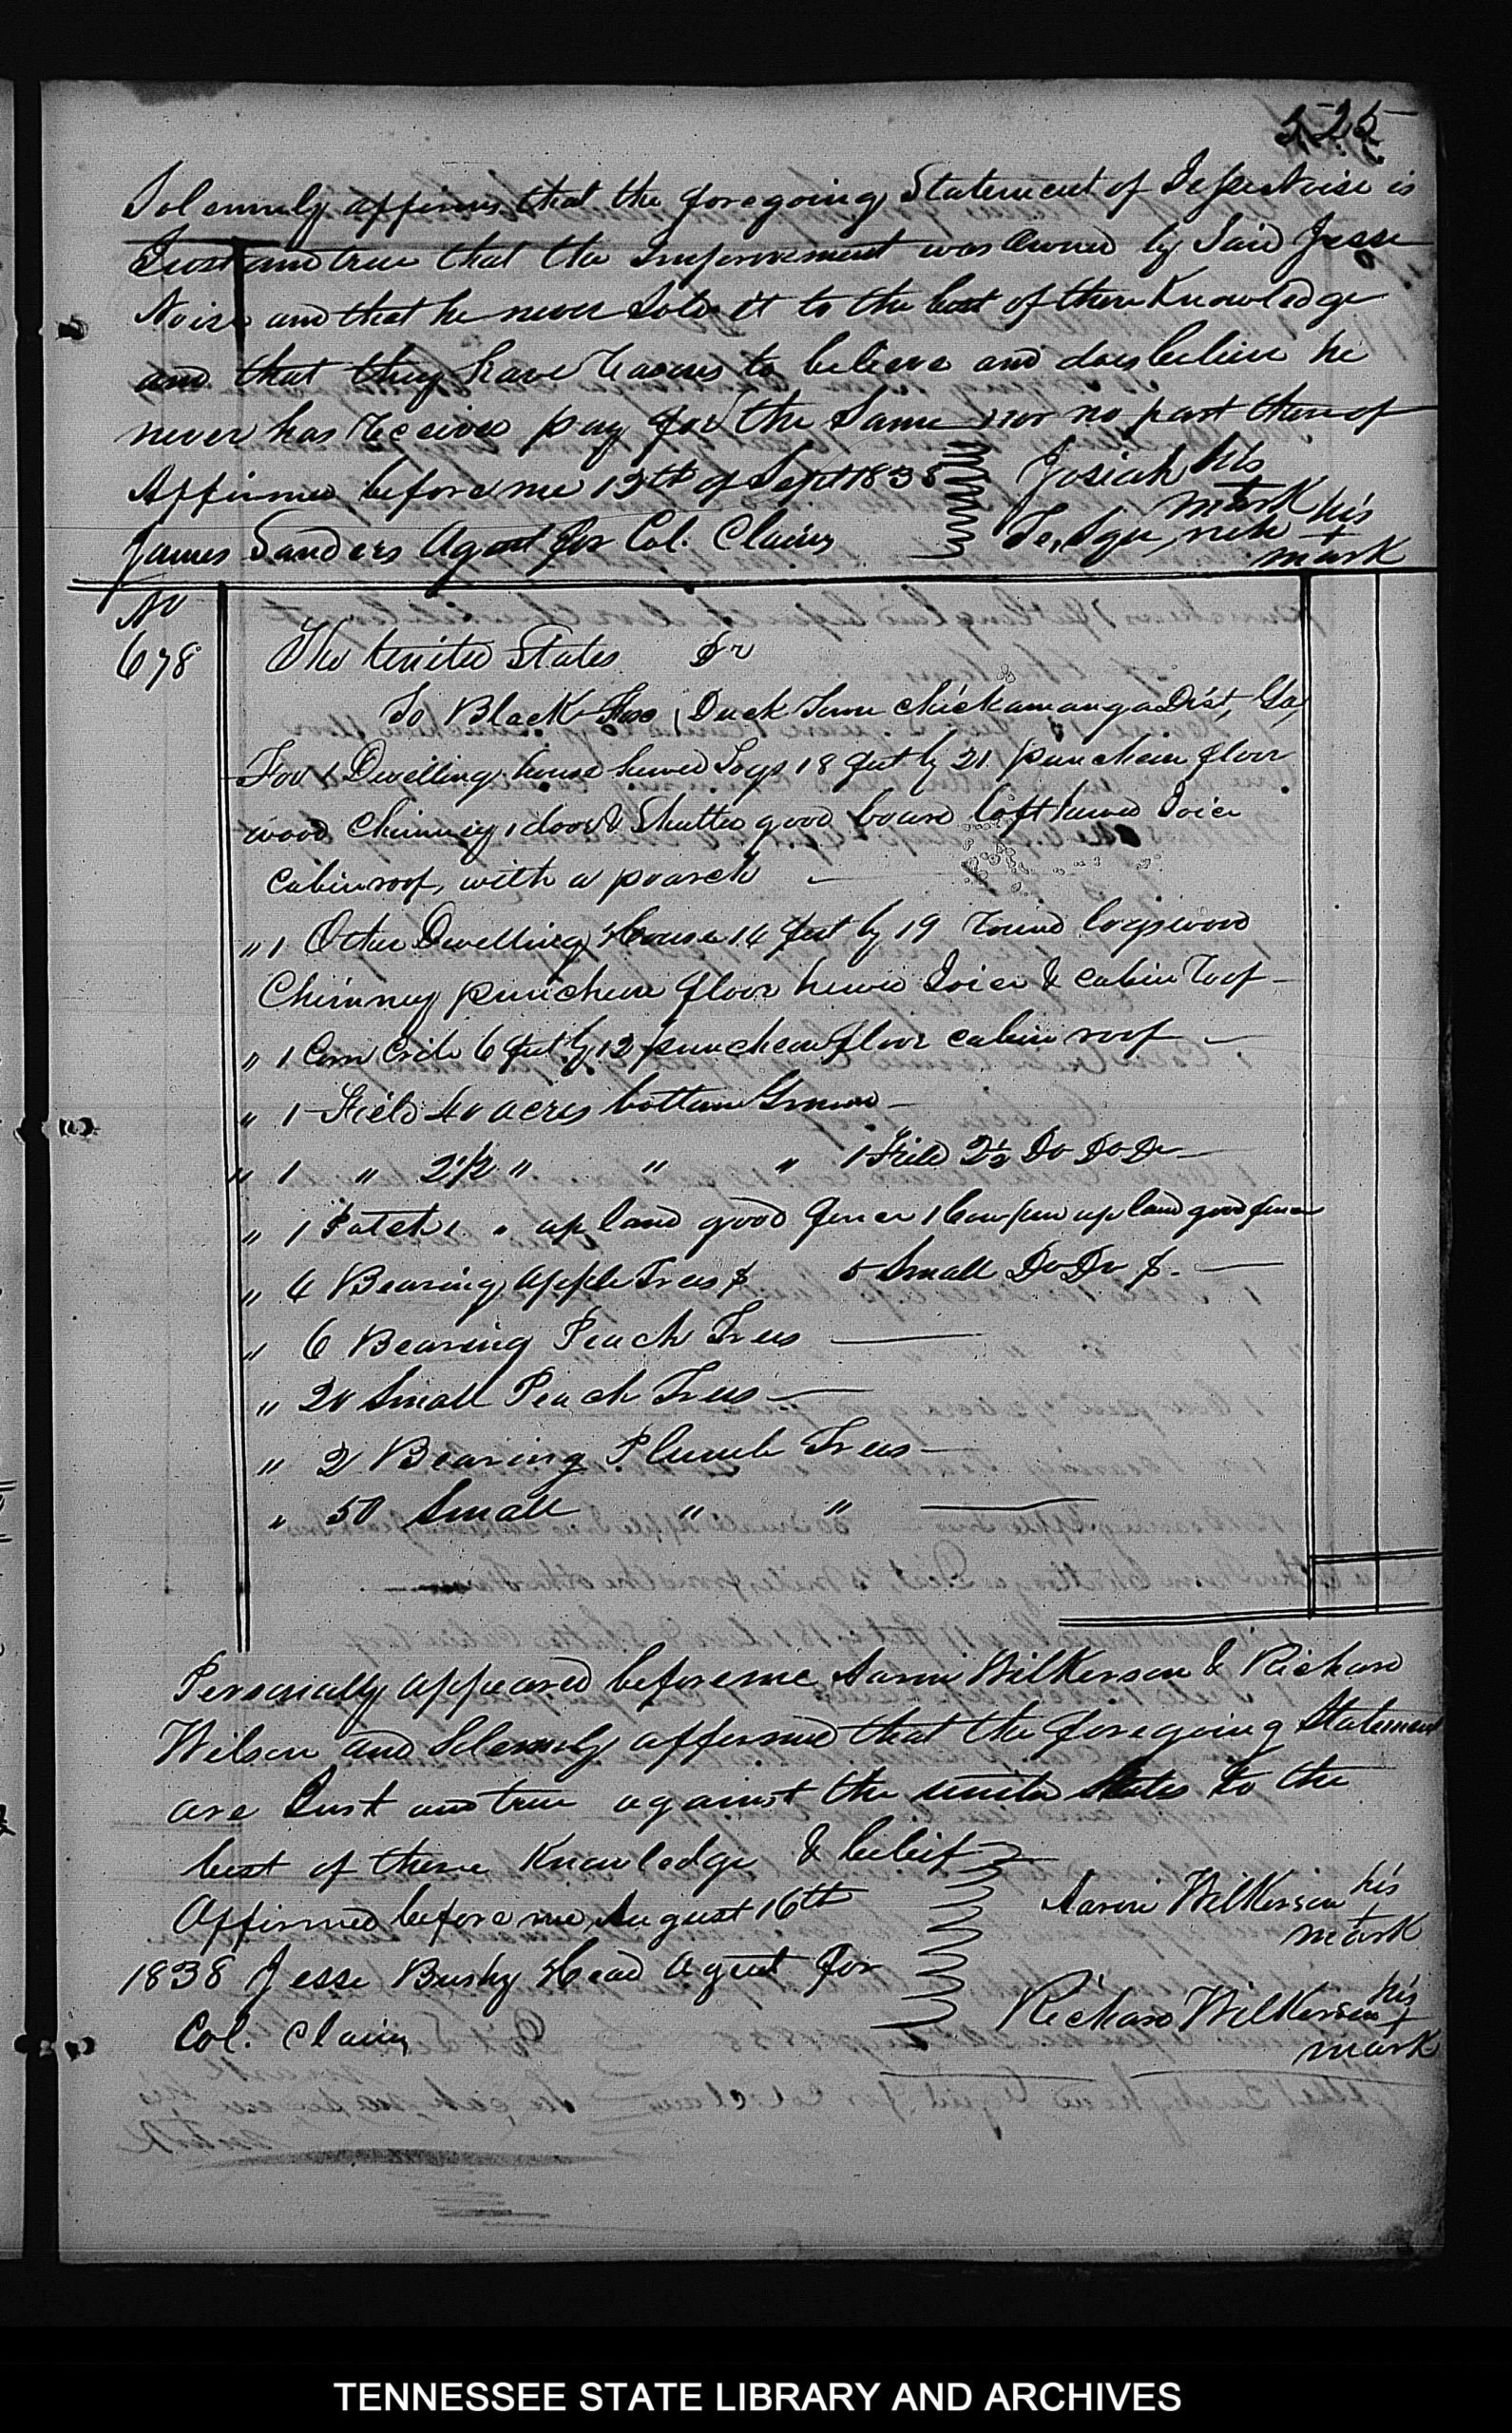 525
Solemnly affirms that the foregoing Statement of Jesse Noise is
Just and true that the Improvement was owned by Said Jesse
Noise and that he never Sold it to the best of there Knowledge
and that they have reasons to believe and does believe he
never has received pay for the Same nor no part thereof
Affirmed before me 13th of Sept 1838 Josiah his
mark
James Sanders Agent for Col. Claims his
mark
No
678 The United States Dr
To Black Fox Duck Town Chickamauga Dist, Ga,
For 1 Dwelling house hewed Logs 18 feet by 21 puncheon floor
wood Chimney 1 door & Shutter good board loft hewed Joice
Cabin roof, with a poarch
" 1 Other Dwelling House 14 feet by 19 round logs wood
Chimney puncheon floor hewed Joice & cabin roof
" 1 Corn Crib 6 feet by 12 puncheon floor cabin roof
" 1 Field 40 acres bottom Ground
" 1 " 2 1/2 " " " 1 Field 2 1/2 Do Do Do
" 1 Patch 1 " up land good fence 1 Cow pen up land good fence
" 4 Bearing apple Trees $ 5 Small Do Do $
" 6 Bearing Peach Trees
" 20 Small Peach Trees
" 2 Bearing Plumb Trees
" 50 Small " "
Personally appeared before me Aaron Wilkerson & Richard
Wilson and Solemnly affirmed that the foregoing Statement
are Just and true against the united States to the
best of there Knowledge & beleif
Affirmed before me August 16th Aaron Wilkerson his
mark
1838 Jesse Bushy Head Agent for
Col. Claims Richard Wilkerson his
+
mark
TENNESSEE STATE LIBRARY AND ARCHIVES